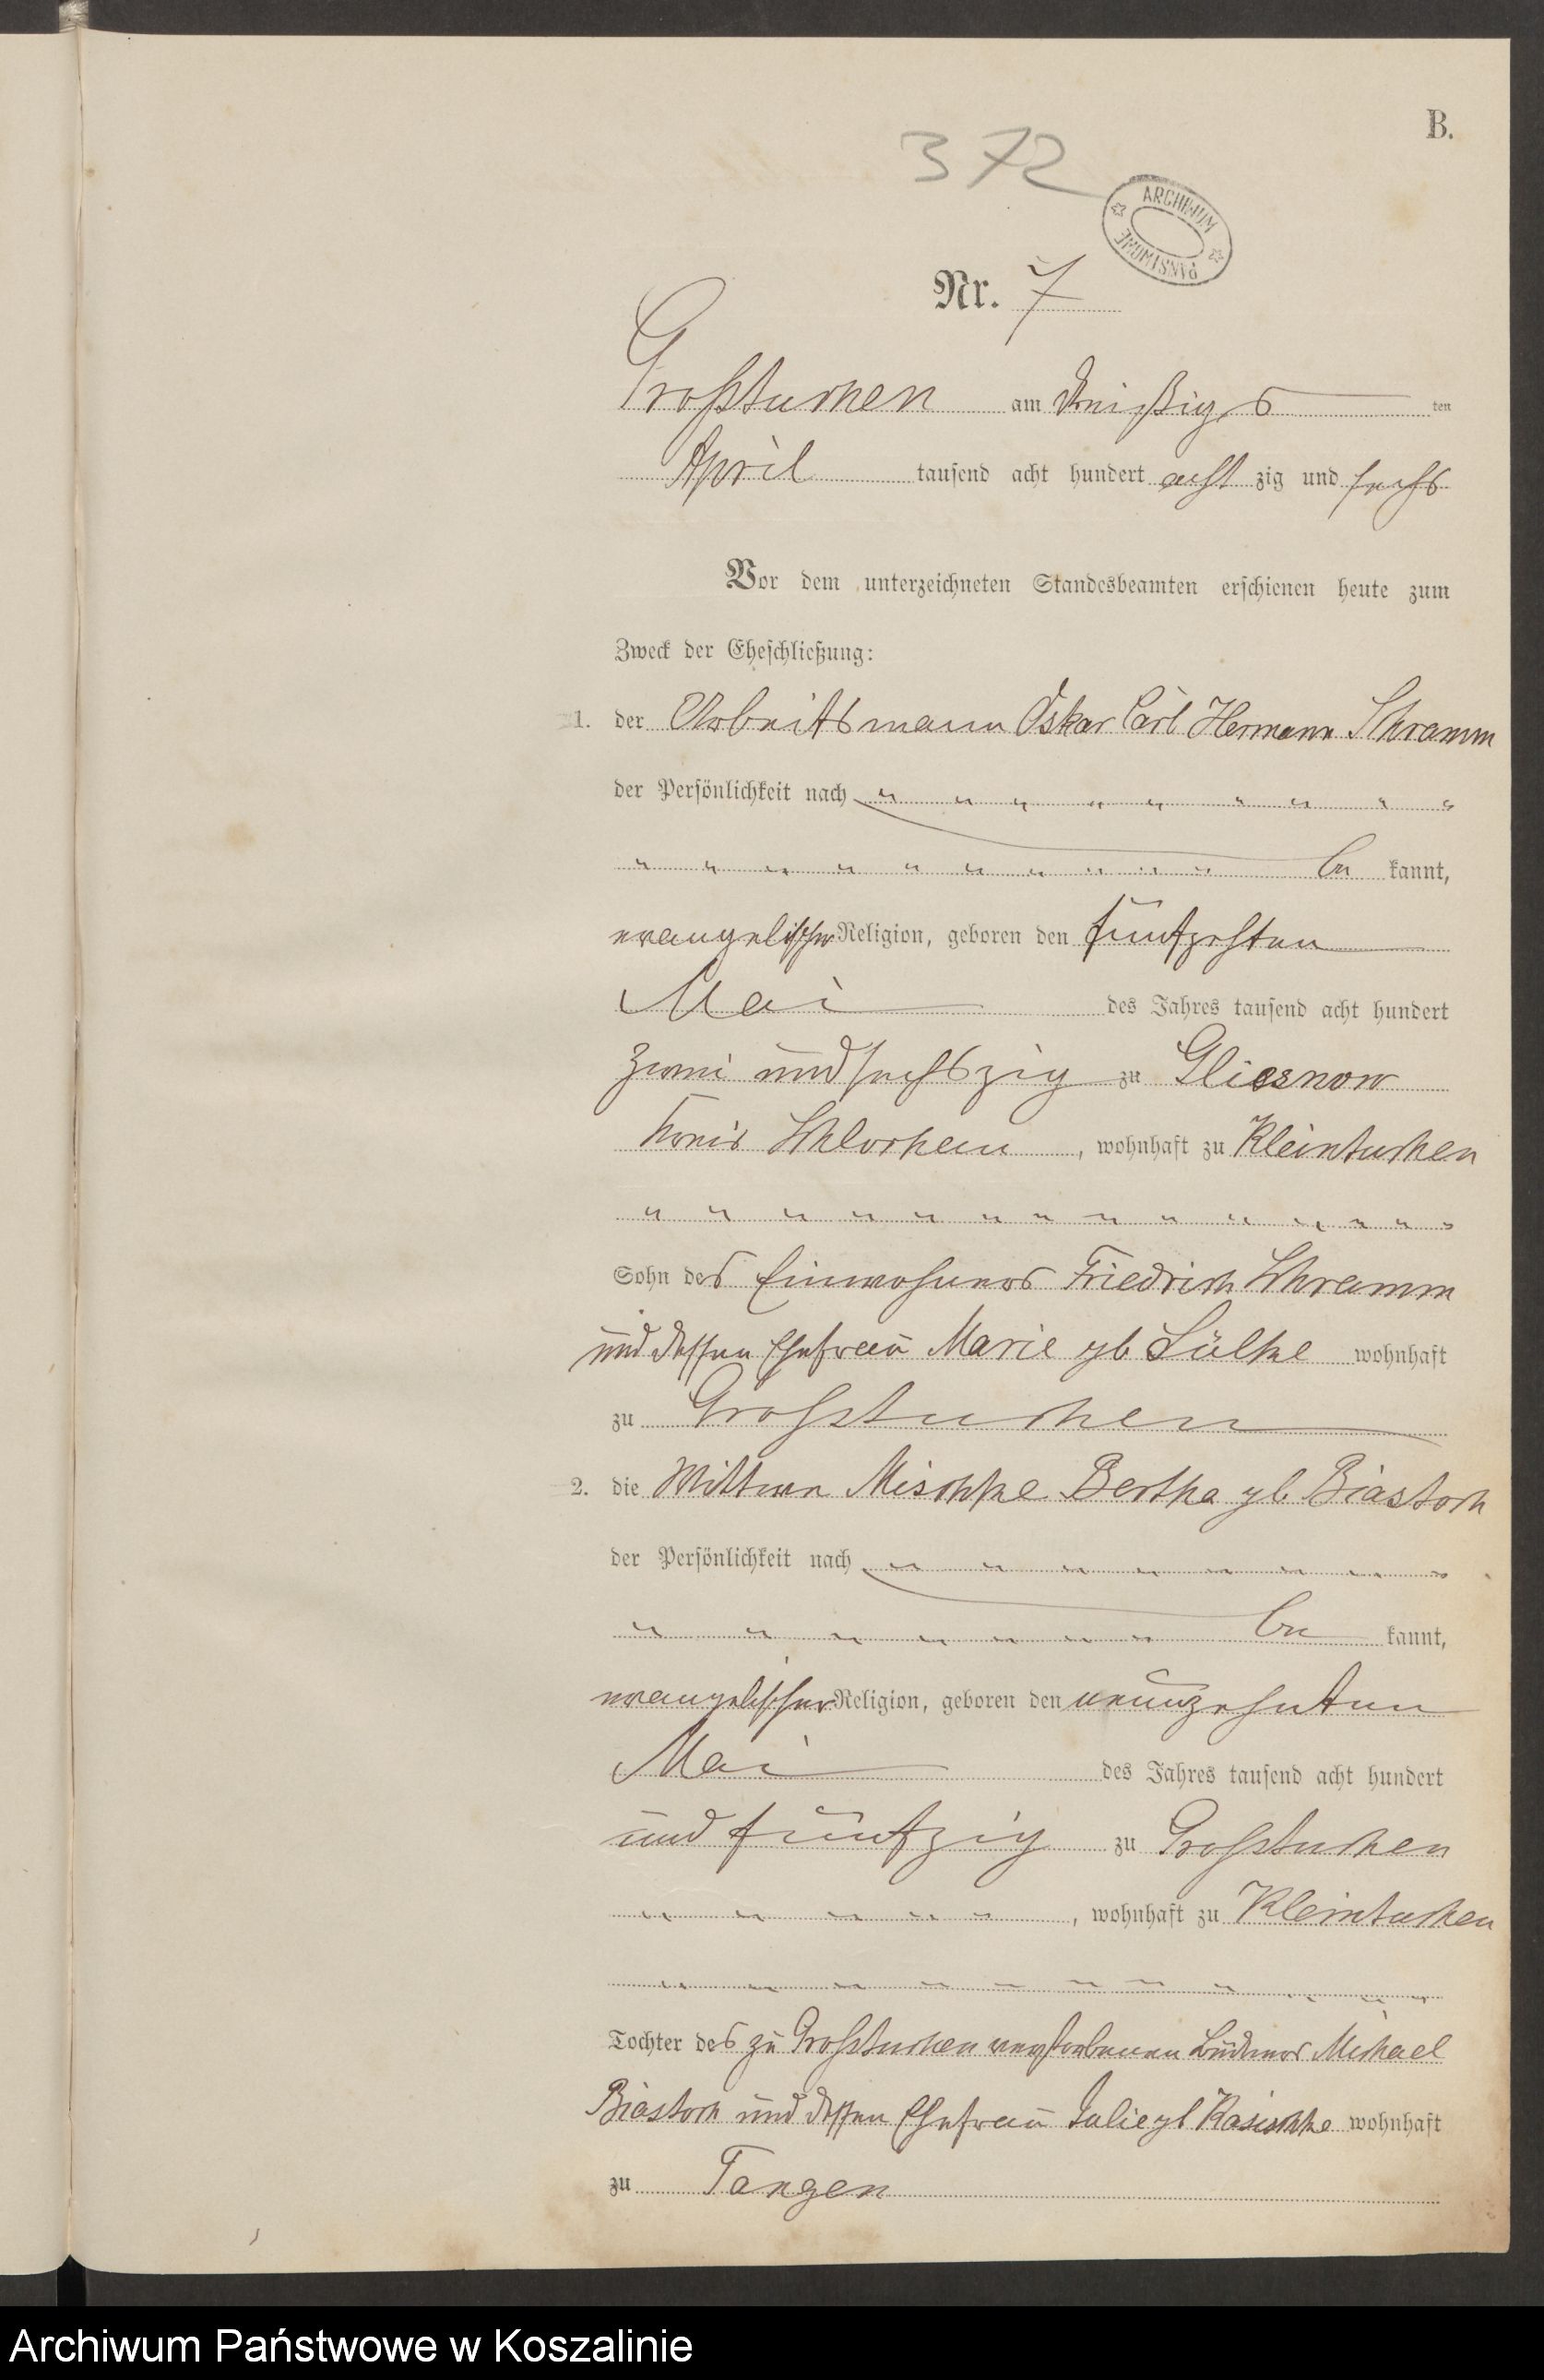 B.
372
ARCHIWUM PAŃSTWOWE
Nr. 7
Großtuchen am dreißigs ten
April tausend acht hundert acht zig und sechs
Vor dem unterzeichneten Standesbeamten erschienen heute zum
Zweck der Eheschließung:
1. der Arbeitsmann Oskar Carl Hermann Schramm
der Persönlichkeit nach
be kannt,
evangelischer Religion, geboren den fünfzehten
Mai des Jahres tausend acht hundert
zwei und sechszig zu Gliesnow
Kreis Schlochau, wohnhaft zu Kleintuchen
Sohn des Einwohners Friedrich Schramm
und dessen Ehefrau Marie gb Lülke wohnhaft
zu Großtuchen
2. die Wittwe Mischke Bertha gb. Biastoch
der Persönlichkeit nach
be kannt,
evangelischer Religion, geboren den neunzehnten
Mai des Jahres tausend acht hundert
und fünfzig zu Großtuchen
, wohnhaft zu Kleintuchen
Tochter des zu Großtuchen verstorbenen Büdners Michael
Biastoch und dessen Ehefrau Julie gb Kasischke wohnhaft
zu Tangen
Archiwum Państwowe w Koszalinie